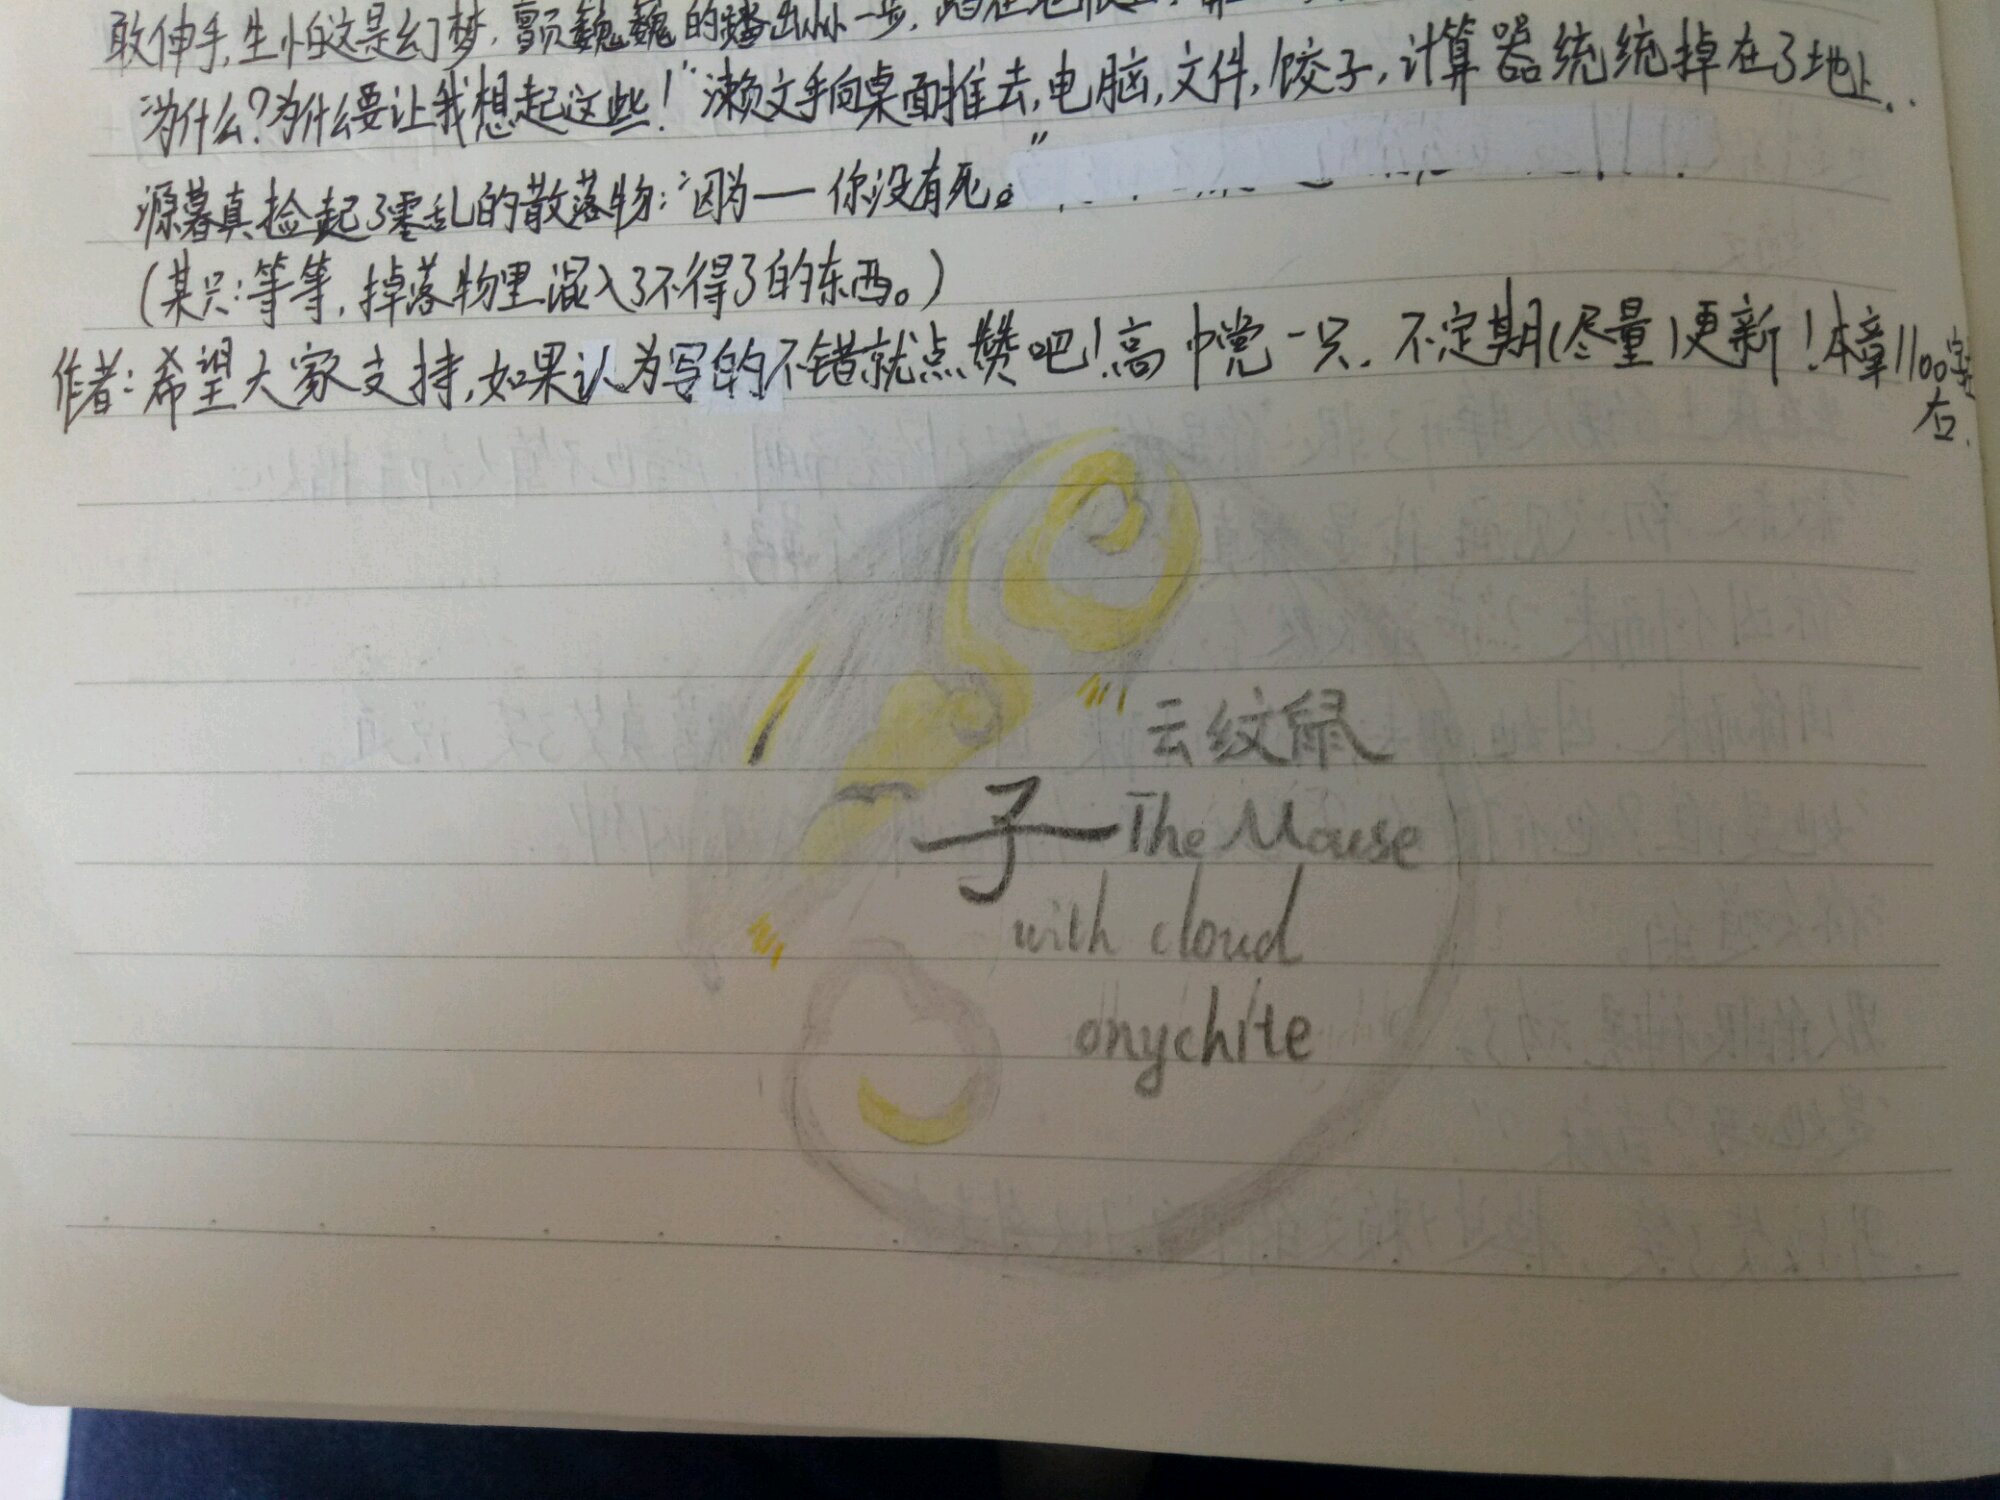 敢伸手,生怕这是幻梦,颤巍巍的踏出小小一步,
为什么?为什么要让我想起这些!"濑文手向桌面推去,电脑,文件,饺子,计算器统统掉在了地上..
源暮真捡起了零乱的散落物:"因为——你没有死。"
(某只:等等,掉落物里混入了不得了的东西。)
作者:希望大家支持,如果认为写的不错就点赞吧!高中党一只,不定期(尽量)更新!本章1100字
右.
云纹鼠
子 The Mouse
with cloud
onychite